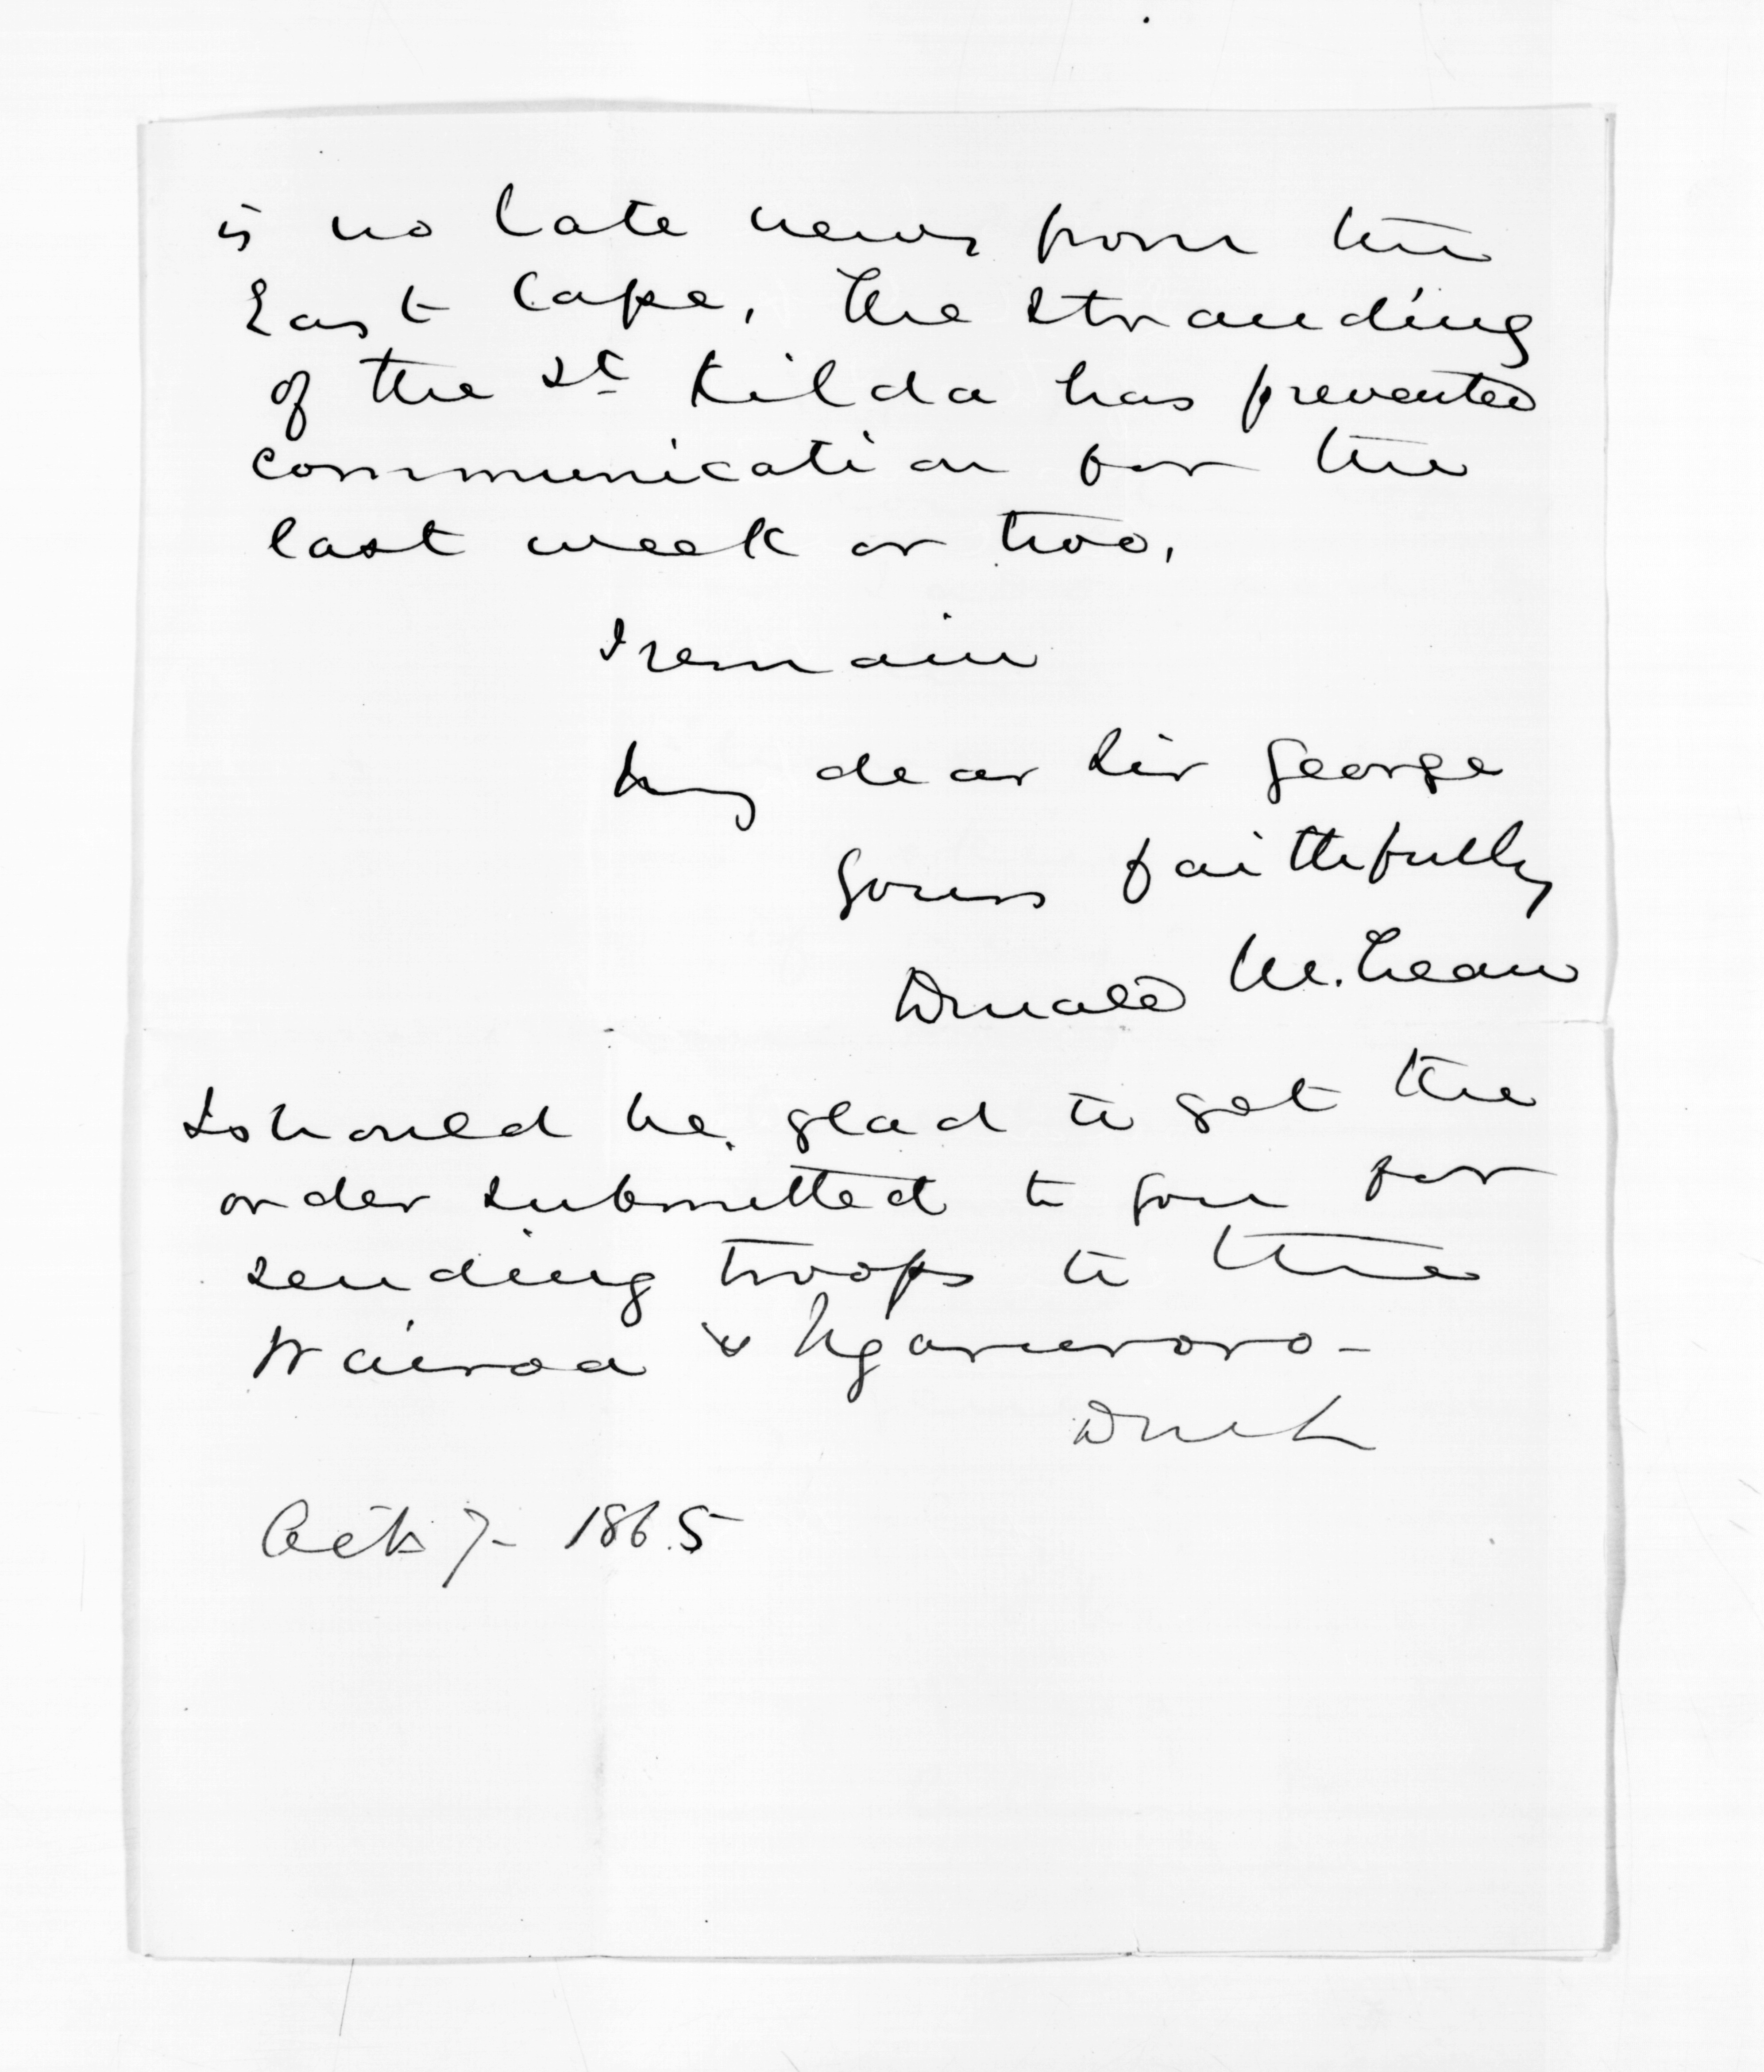 is no late news from the
East Cape, The stranding
of the St Kilda has prevented
communication for the
last week or two,
I remain
My dear Sir George
Yours faithfully
Donald McLean
I should be glad to get the
order submitted to you for
sending troops to the
Wairoa & Ngaruroro -
DMcL
Oct 7 - 1865